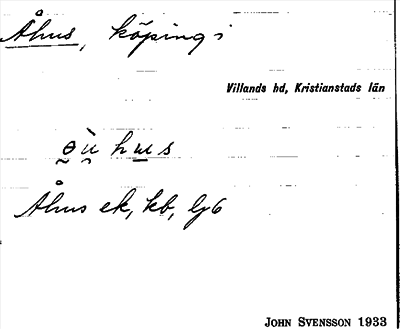 Åhus, köping i
Villands hd, Kristianstads län
Åhus ek, kb, lj6
JOHN SVENSSON 1933